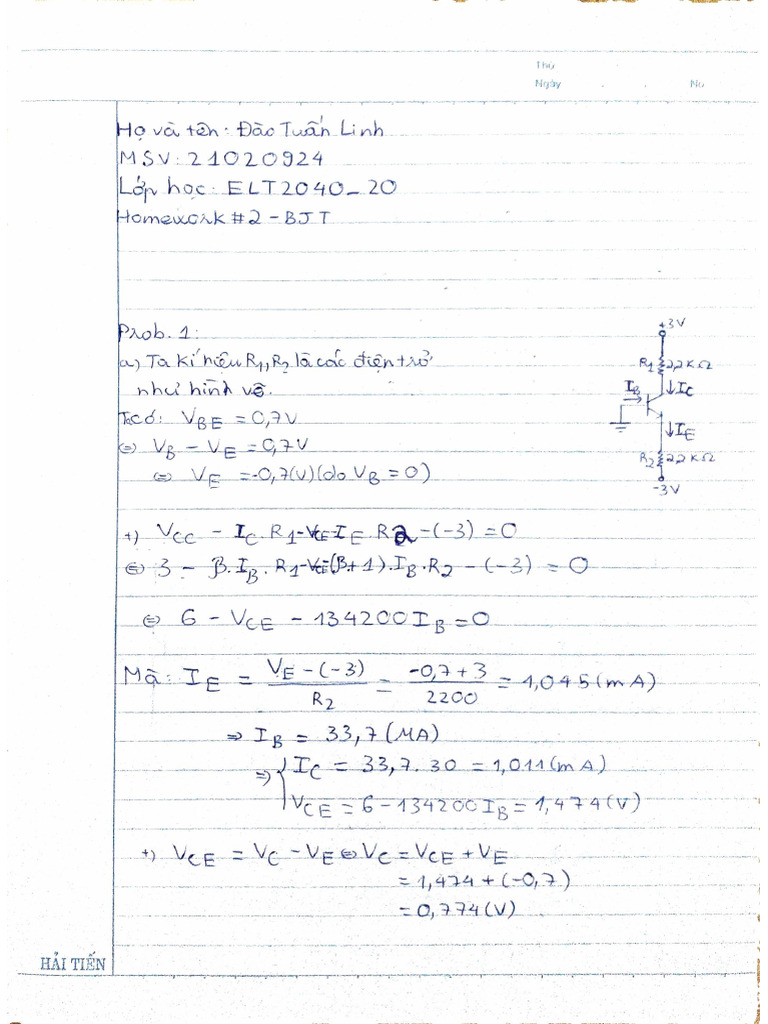 Thứ
Ngày . . No
Họ và tên: Đào Tuấn Linh
MSV: 21020924
Lớp học: ELT2040_20
Homework #2 - BJT
Prob. 1:
a) Ta kí hiệu R₁, R₂ là các điện trở
như hình vẽ.
Ta có: V_BE = 0,7V
⇔ V_B - V_E = 0,7V
⇔ V_E = -0,7(V) (do V_B = 0)
+3V
R₁ 2,2KΩ
I_B ↓I_C
↓I_E
R₂ 2,2KΩ
-3V
+) V_CC - I_C . R₁ - V_CE - I_E . R₂ - (-3) = 0
⇔ 3 - β.I_B . R₁ - V_CE - (β+1).I_B.R₂ - (-3) = 0
⇔ 6 - V_CE - 134200I_B = 0
Mà: I_E = (V_E - (-3))/R₂ = (-0,7+3)/2200 = 1,045(mA)
⇒ I_B = 33,7(MA)
⇒ { I_C = 33,7.30 = 1,011(mA)
V_CE = 6 - 134200I_B = 1,474(V)
+) V_CE = V_C - V_E ⇔ V_C = V_CE + V_E
= 1,474 + (-0,7)
= 0,774(V)
HẢI TIẾN